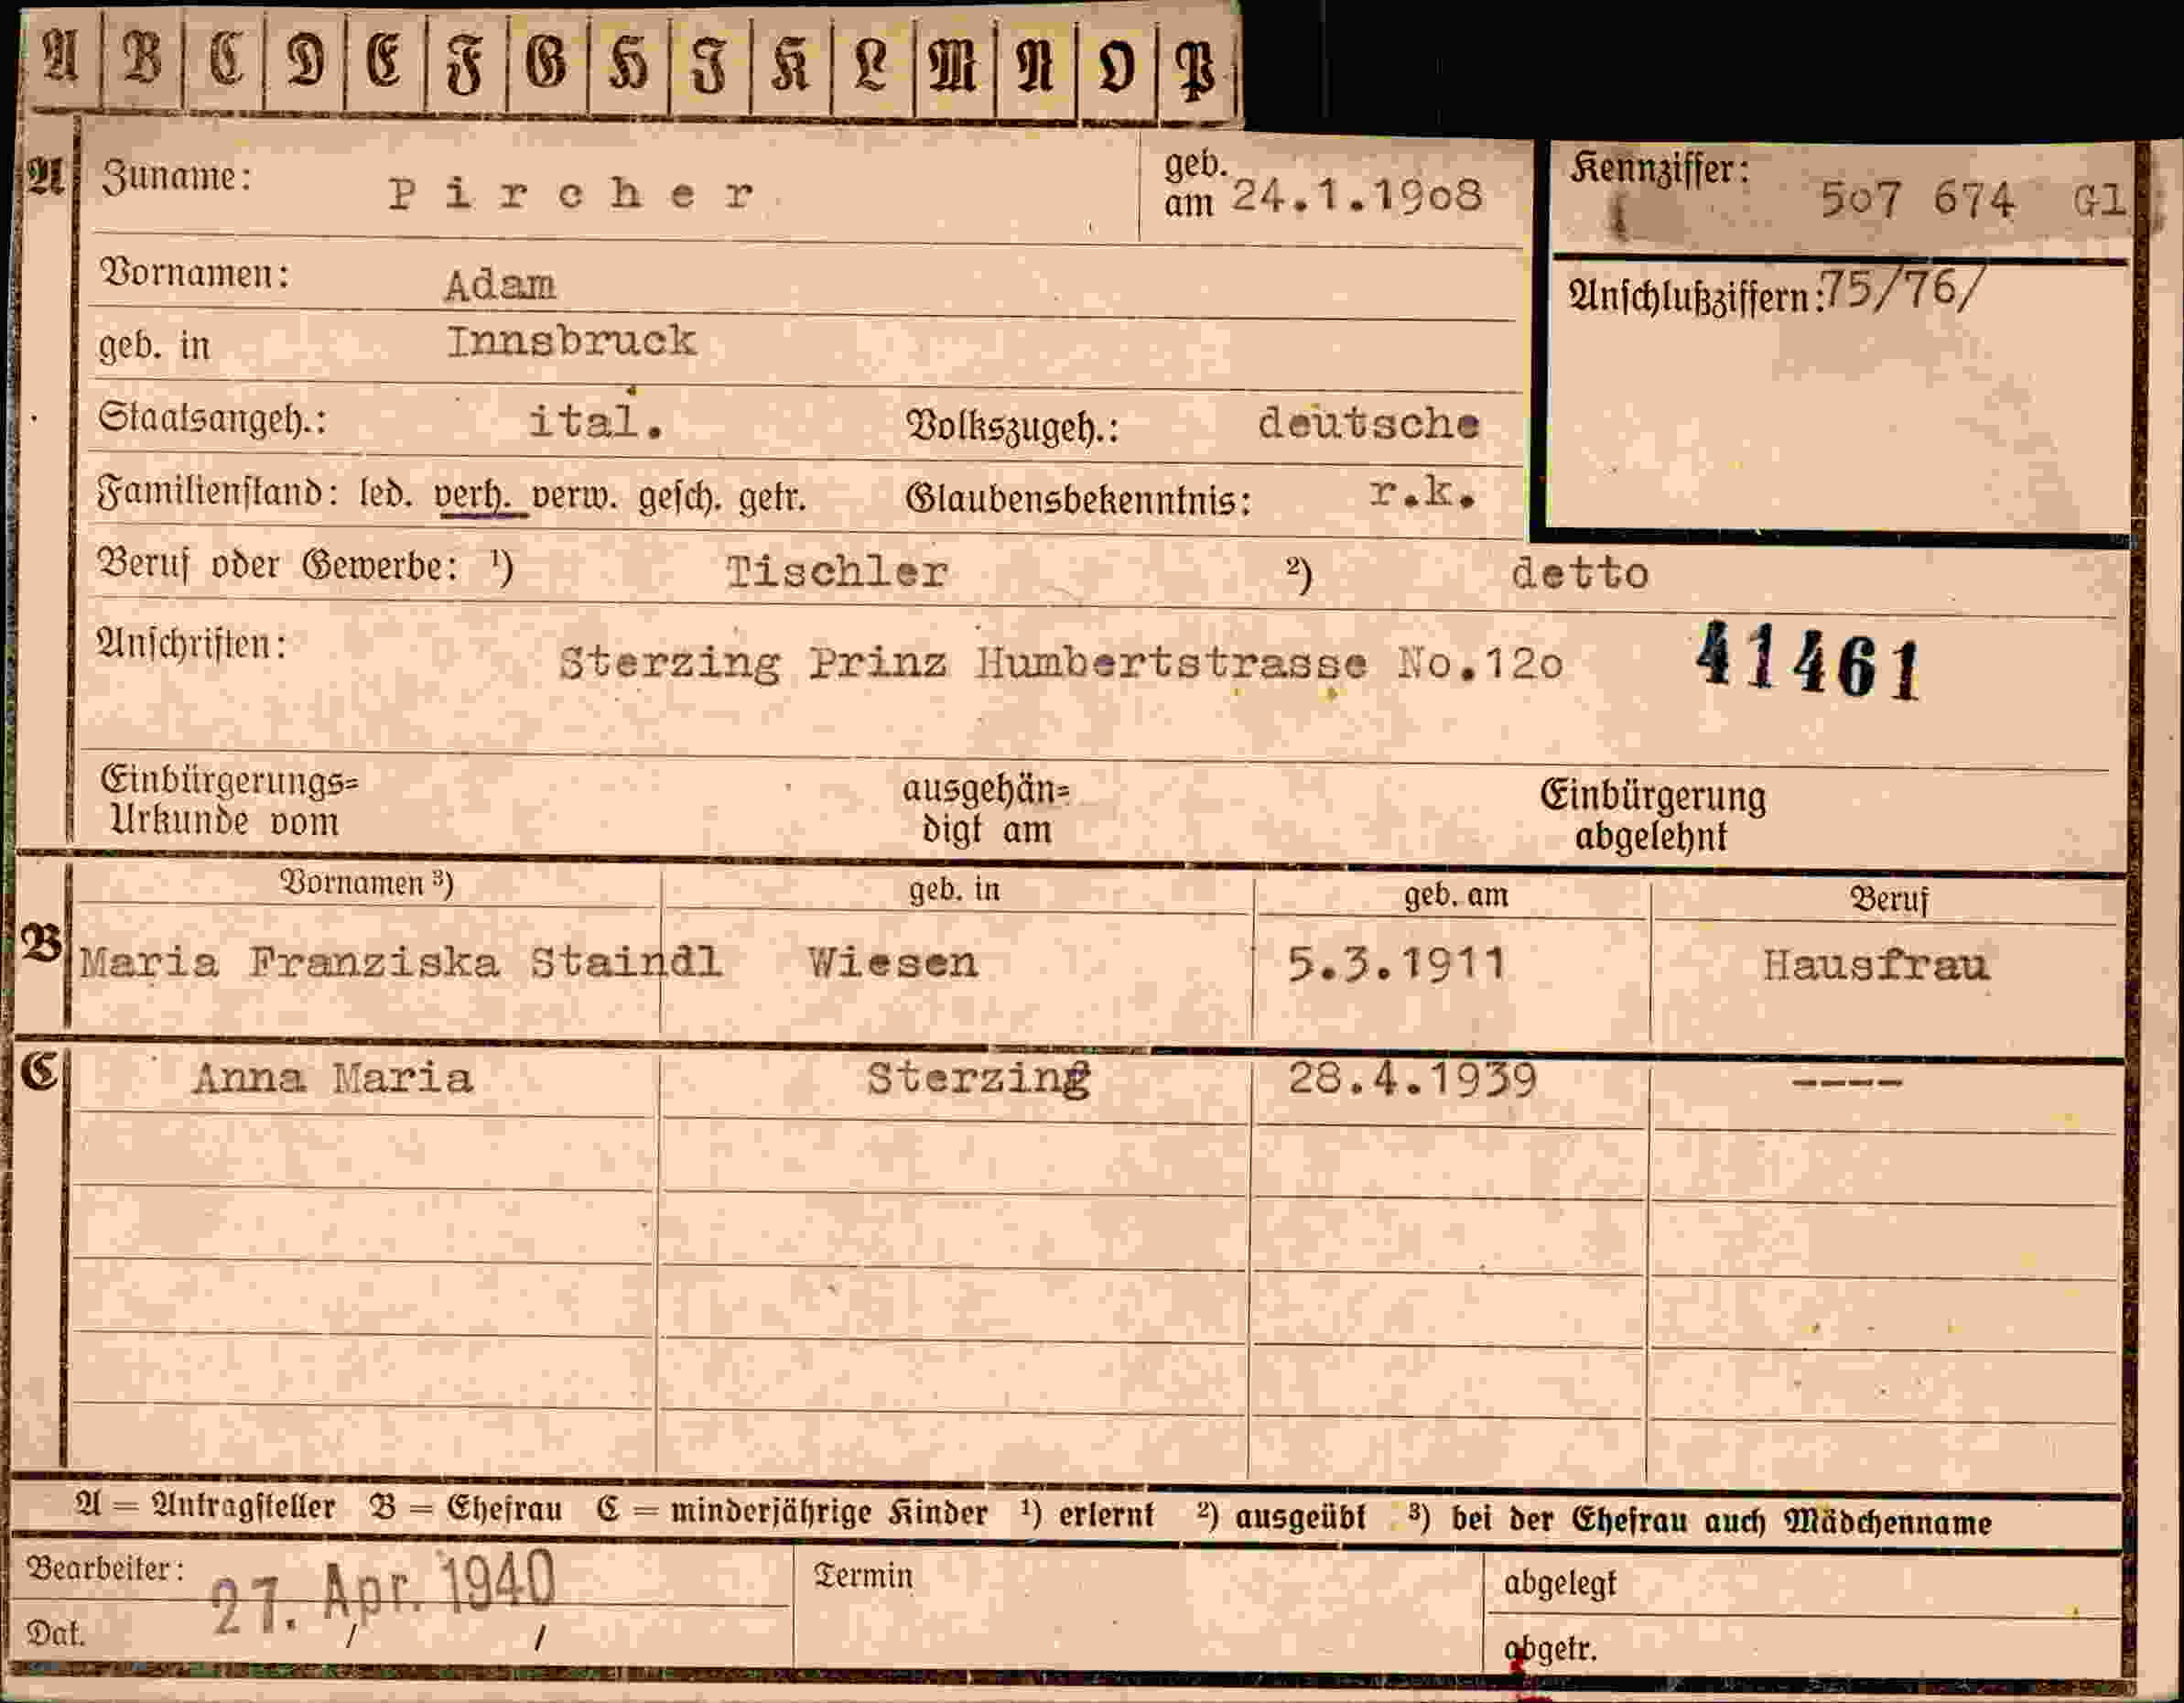 A B C D E F G H I K L M N O P
A Zuname: Pircher geb. am 24.1.1908 Kennziffer: 507 674 Gl
Vornamen: Adam Anschlußziffern: 75/76/
geb. in Innsbruck
Staatsangeh.: ital. Volkszugeh.: deutsche
Familienstand: led. verh. verw. gesch. getr. Glaubensbekenntnis: r.k.
Beruf oder Gewerbe: ¹) Tischler ²) detto
Anschriften: Sterzing Prinz Humbertstrasse No.120 41461
Einbürgerungs= ausgehän= Einbürgerung
Urkunde vom digt am abgelehnt
Vornamen ³) geb. in geb. am Beruf
B Maria Franziska Staindl Wiesen 5.3.1911 Hausfrau
C Anna Maria Sterzing 28.4.1939 ----
A = Antragsteller B = Ehefrau C = minderjährige Kinder ¹) erlernt ²) ausgeübt ³) bei der Ehefrau auch Mädchenname
Bearbeiter: 27. Apr. 1940 Termin abgelegt
Dat. / / abgetr.